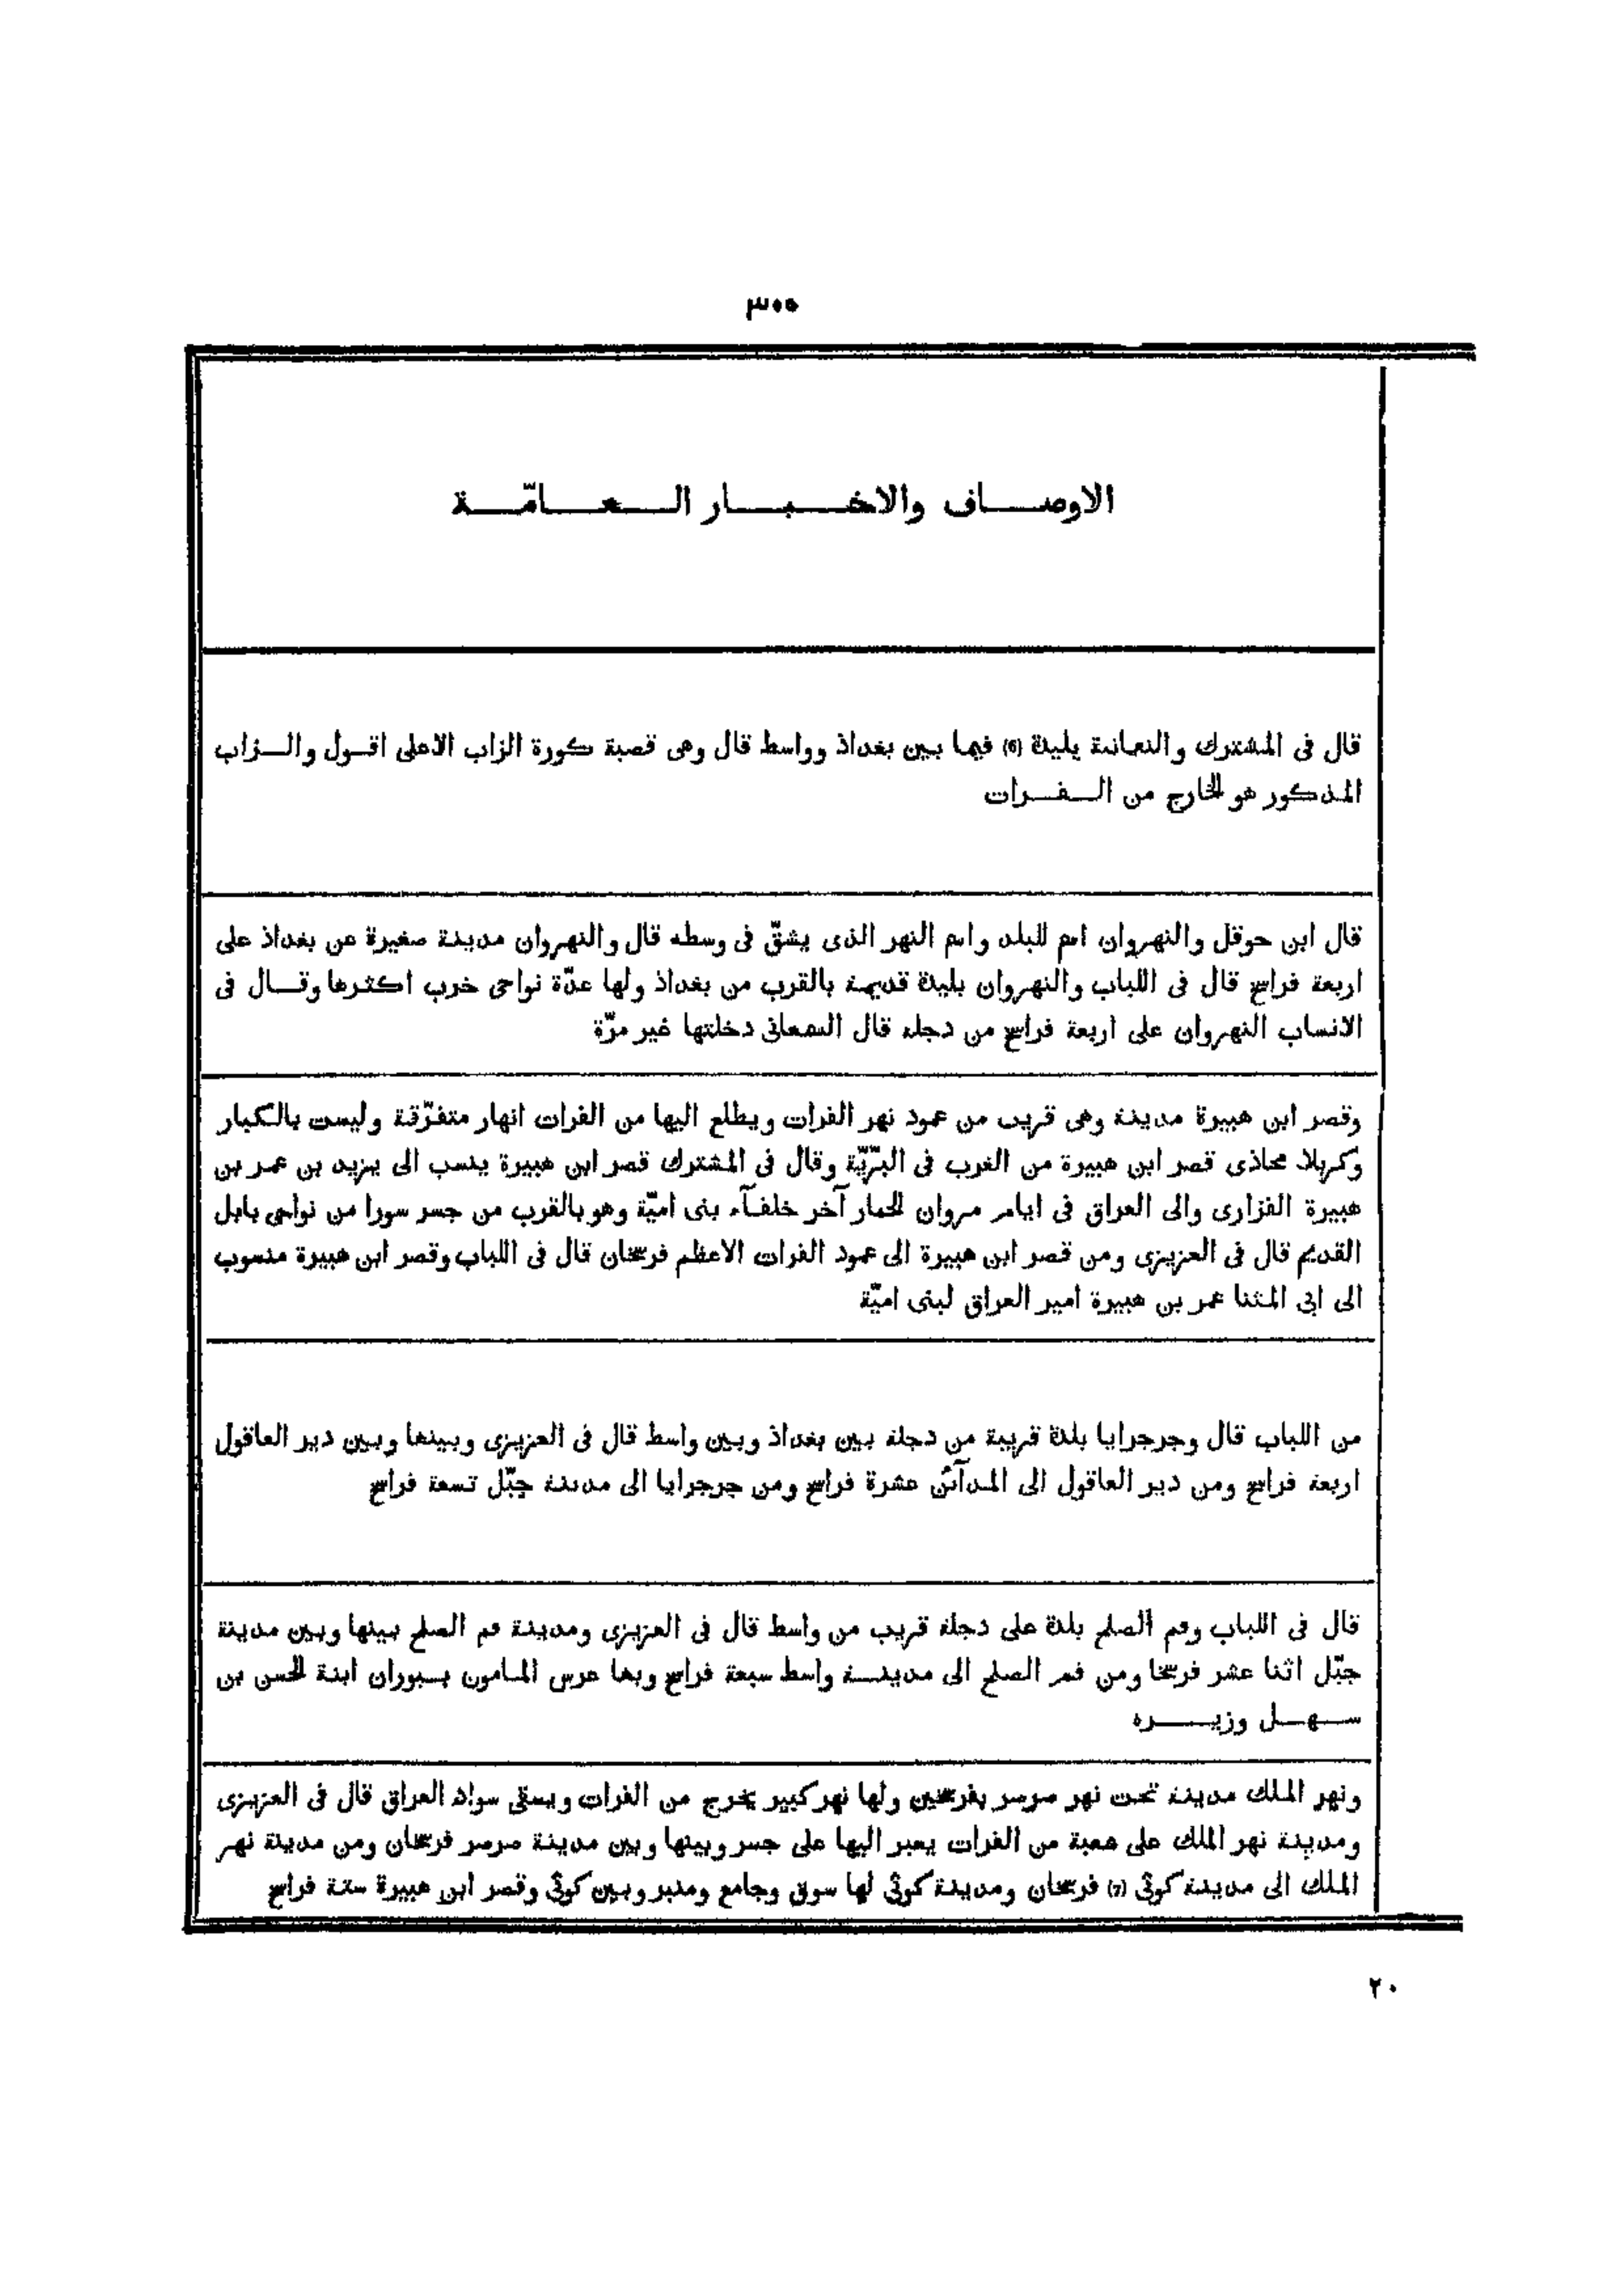 ٣٠٥
الاوصاف والاخبار العامّة
قال فى المشترك والنعمانية بليدة (6) فيما بين بغداذ وواسط قال وهى قصبة كورة الزاب الاعلى اقول والزاب
المذكور هو الخارج من الفرات
قال ابن حوقل والنهروان اسم للبلد واسم النهر الذى يشقّ فى وسطه قال والنهروان مدينة صغيرة عن بغداذ على
اربعة فراسخ قال فى اللباب والنهروان بليدة قديمة بالقرب من بغداذ ولها عدّة نواحى خرب اكثرها وقال فى
الانساب النهروان على اربعة فراسخ من دجلة قال السمعانى دخلتها غير مرّة
وقصر ابن هبيرة مدينة وهى قريب من عمود نهر الفرات ويطلع اليها من الفرات انهار متفرّقة وليست بالكبار
وكربلا محاذى قصر ابن هبيرة من الغرب فى البرّيّة وقال فى المشترك قصر ابن هبيرة ينسب الى يزيد بن عمر بن
هبيرة الفزارى والى العراق فى ايام مروان الحمار آخر خلفآء بنى اميّة وهو بالقرب من جسر سورا من نواحى بابل
القديم قال فى العزيزى ومن قصر ابن هبيرة الى عمود الفرات الاعظم فرسخان قال فى اللباب وقصر ابن هبيرة منسوب
الى ابى المثنا عمر بن هبيرة امير العراق لبنى اميّة
من اللباب قال وجرجرايا بلدة قريبة من دجلة بين بغداذ وبين واسط قال فى العزيزى وبينها وبين دير العاقول
اربعة فراسخ ومن دير العاقول الى المدآئن عشرة فراسخ ومن جرجرايا الى مدينة جبّل تسعة فراسخ
قال فى اللباب وفم الصلح بلدة على دجلة قريب من واسط قال فى العزيزى ومدينة فم الصلح بينها وبين مدينة
جبّل اثنا عشر فرسخا ومن فم الصلح الى مدينة واسط سبعة فراسخ وبها عرس المامون ببوران ابنة الحسن بن
سهل وزيره
ونهر الملك مدينة تحت نهر صرصر بفرسخين ولها نهر كبير يخرج من الفرات ويسقى سواد العراق قال فى العزيزى
ومدينة نهر الملك على شعبة من الفرات يعبر اليها على جسر وبينها وبين مدينة صرصر فرسخان ومن مدينة نهر
الملك الى مدينة كوثى (7) فرسخان ومدينة كوثى لها سوق وجامع ومنبر وبين كوثى وقصر ابن هبيرة ستة فراسخ
٢٠